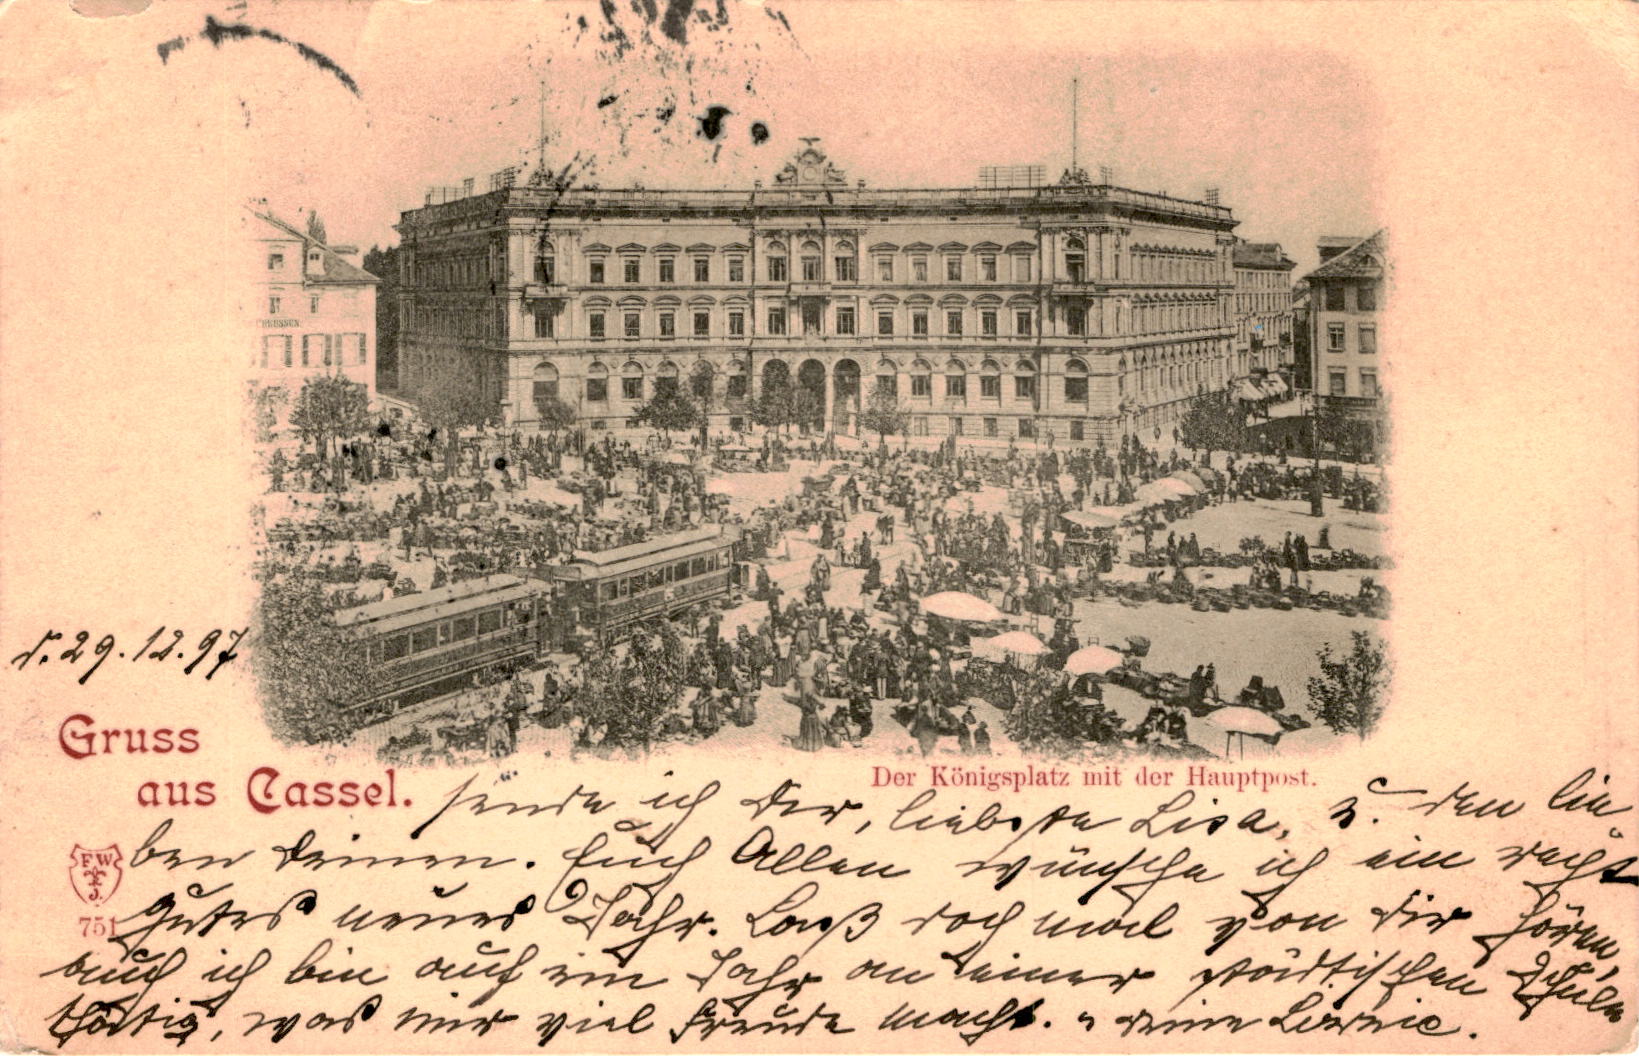 PREUSSEN
d. 29. 12. 97
Gruss
aus Cassel.
Der Königsplatz mit der Hauptpost.
sende ich Dir, liebste Lisa, u. den lie
ben Deinen. Euch Allen wünsche ich ein recht
gutes neues Jahr. Laß doch mal von Dir hören,
auch ich bin auf ein Jahr an einer städtischen Schule
thätig, was mir viel Freude macht. deine
F W
J.
751